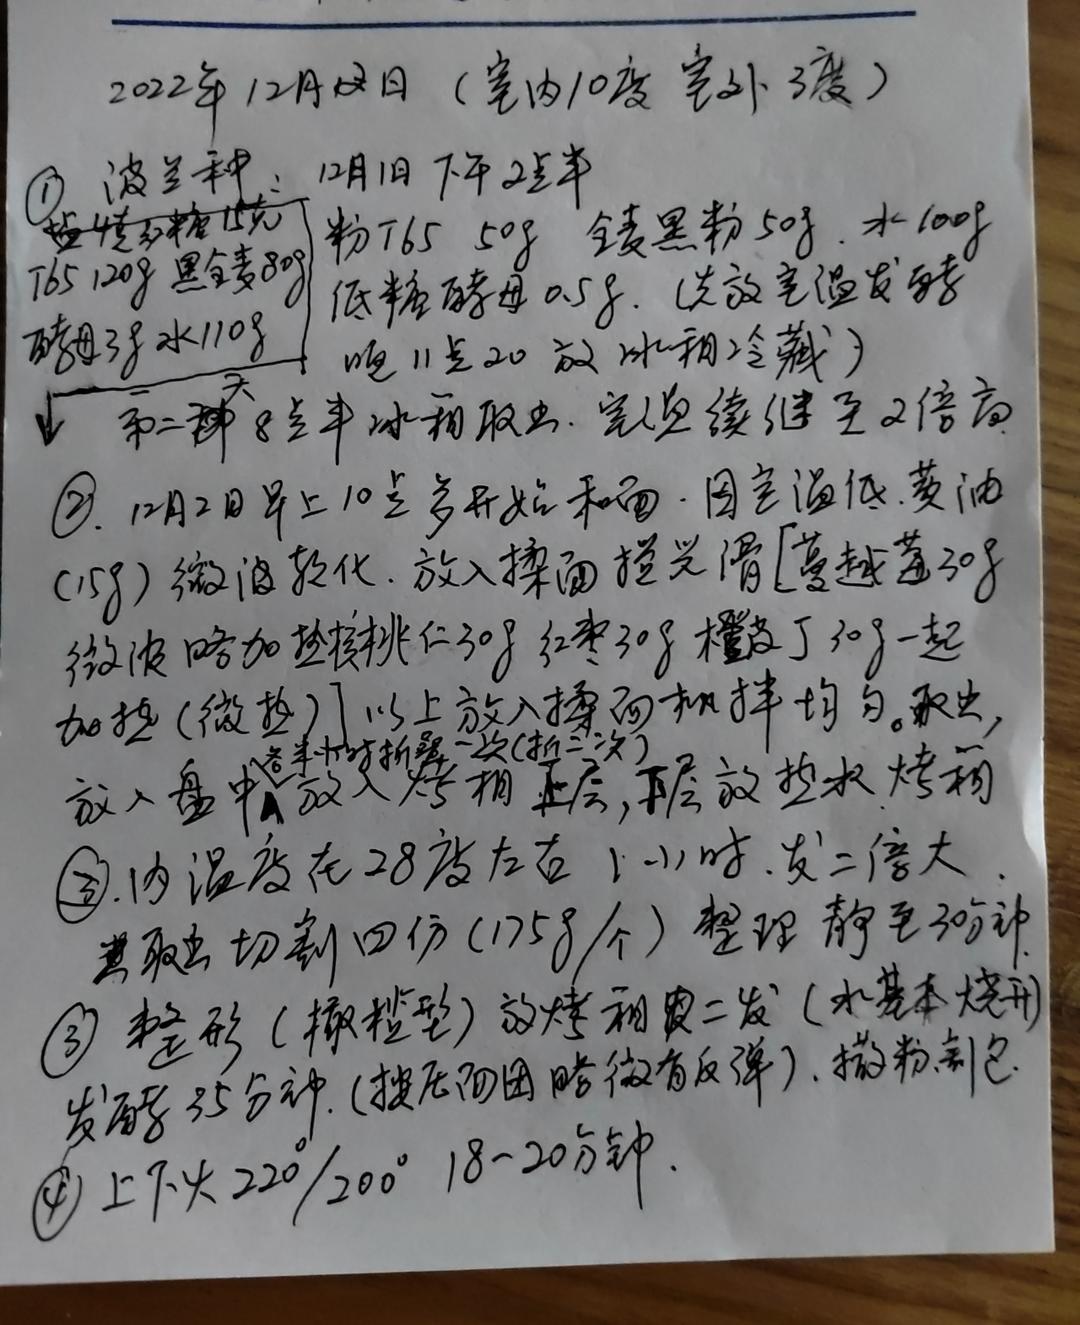 2022年12月2日（室内10度 室外3度）
① 波兰种：12月1日下午2点半
盐4克 红糖15克
T65 120g 黑全麦80g
酵母3g 水110g
粉T65 50g 全麦黑粉50g. 水100g
低糖酵母0.5g.（先放室温发酵
晚11点20放冰箱冷藏）
第二天8点半冰箱取出. 室温续继至2倍高
②. 12月2日早上10点多开始和面. 因室温低. 黄油
(15g) 微波软化. 放入揉面揉光滑[蔓越莓30g
微波略加热核桃仁30g 红枣30g 橙皮丁30g一起
加热（微热）]以上放入揉面机拌均匀。取出,
各半小时折叠一次(折二次)
放入盘中 放入烤箱上层, 下层放热水 烤箱
②. 内温度在28度左右1小时. 发二倍大.
取出切割四份(175g/个) 整理静至30分钟.
③ 整形（橄榄型）放烤箱 二发（水基本烧开）
发酵35分钟.（按压面团略微有反弹）. 撒粉割包.
④ 上下火220°/200° 18-20分钟.